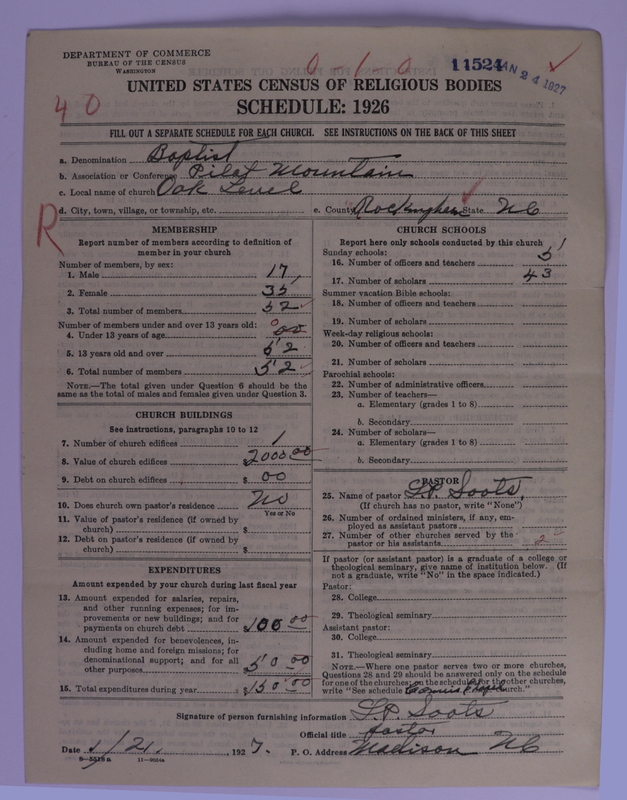 DEPARTMENT OF COMMERCE
BUREAU OF THE CENSUS
WASHINGTON
0 1 0
11524
JAN 24 1927
40
UNITED STATES CENSUS OF RELIGIOUS BODIES
SCHEDULE: 1926
FILL OUT A SEPARATE SCHEDULE FOR EACH CHURCH. SEE INSTRUCTIONS ON THE BACK OF THIS SHEET
a. Denomination Baptist
b. Association or Conference Pilot Mountain
c. Local name of church Oak Level
d. City, town, village, or township, etc. e. County Rockingham State NC
R
MEMBERSHIP
Report number of members according to definition of
member in your church
Number of members, by sex:
1. Male 17
2. Female 35
3. Total number of members 52
Number of members under and over 13 years old:
4. Under 13 years of age 00
5. 13 years old and over 52
6. Total number of members 52
NOTE.—The total given under Question 6 should be the
same as the total of males and females given under Question 3.
CHURCH BUILDINGS
See instructions, paragraphs 10 to 12
7. Number of church edifices 1
8. Value of church edifices 2000.00
9. Debt on church edifices $ 00
10. Does church own pastor's residence No
Yes or No
11. Value of pastor's residence (if owned by
church) $
12. Debt on pastor's residence (if owned by
church) $
EXPENDITURES
Amount expended by your church during last fiscal year
13. Amount expended for salaries, repairs,
and other running expenses; for im-
provements or new buildings; and for
payments on church debt $100.00
14. Amount expended for benevolences, in-
cluding home and foreign missions; for
denominational support; and for all
other purposes $50.00
15. Total expenditures during year $150.00
CHURCH SCHOOLS
Report here only schools conducted by this church
Sunday schools:
16. Number of officers and teachers 5
17. Number of scholars 43
Summer vacation Bible schools:
18. Number of officers and teachers
19. Number of scholars
Week-day religious schools:
20. Number of officers and teachers
21. Number of scholars
Parochial schools:
22. Number of administrative officers
23. Number of teachers—
a. Elementary (grades 1 to 8)
b. Secondary
24. Number of scholars—
a. Elementary (grades 1 to 8)
b. Secondary
PASTOR
25. Name of pastor S.P. Soots,
(If church has no pastor, write "None")
26. Number of ordained ministers, if any, em-
ployed as assistant pastors
27. Number of other churches served by the
pastor or his assistants 2
If pastor (or assistant pastor) is a graduate of a college or
theological seminary, give name of institution below. (If
not a graduate, write "No" in the space indicated.)
Pastor:
28. College
29. Theological seminary
Assistant pastor:
30. College
31. Theological seminary
NOTE.—Where one pastor serves two or more churches,
Questions 28 and 29 should be answered only on the schedule
for one of the churches; on the schedules for the other churches,
write "See schedule church."
Signature of person furnishing information S.P. Soots
Official title Pastor
Date 1/21, 1927. P. O. Address Madison NC
8-5318a 11-9054a